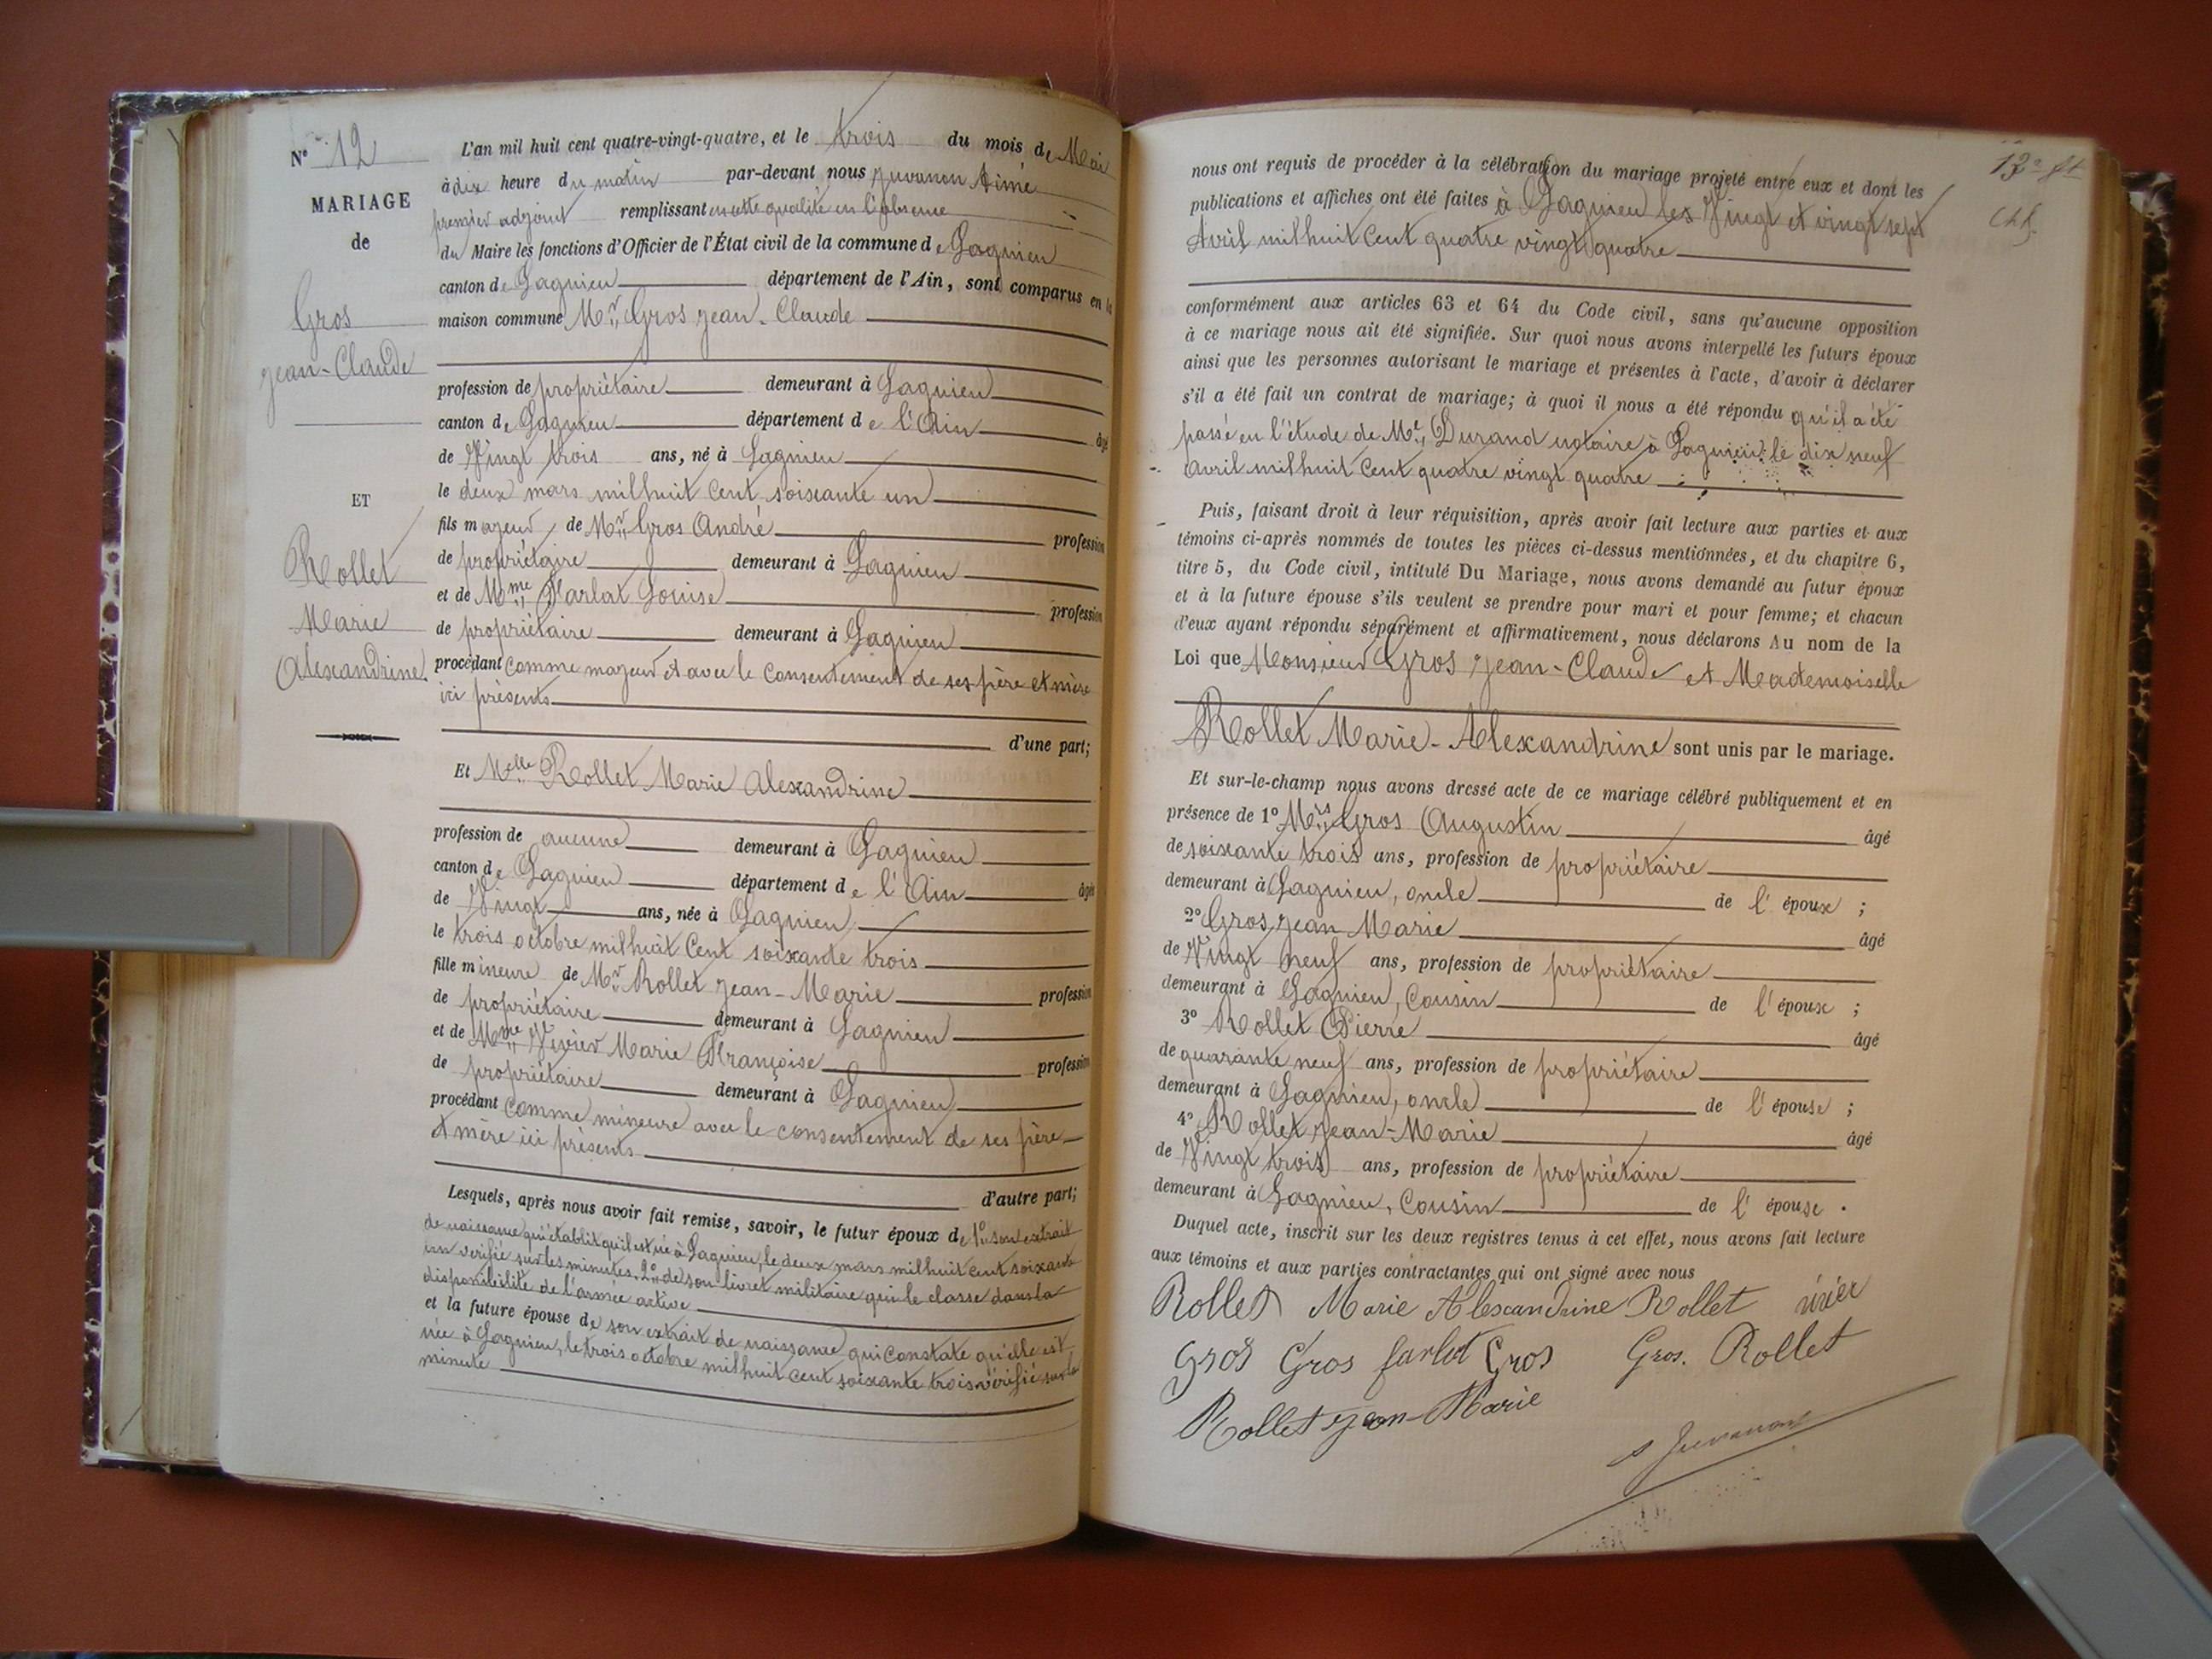 N° 12
MARIAGE
de
Gros
Jean-Claude
ET
Rollet
Marie
Alexandrine.
L'an mil huit cent quatre-vingt-quatre, et le trois du mois de Mai
à dix heure du matin par-devant nous Juvanon Aimé
premier adjoint remplissant en cette qualité en l'absence
du Maire les fonctions d'Officier de l'État civil de la commune de Lagnieu
canton de Lagnieu département de l'Ain, sont comparus en la
maison commune Mr Gros Jean-Claude
profession de propriétaire demeurant à Lagnieu
canton de Lagnieu département de l'Ain âgé
de Vingt trois ans, né à Lagnieu
le deux mars mil huit cent soixante un
fils majeur de Mr Gros André profession
de propriétaire demeurant à Lagnieu
et de Mme Farlat Louise profession
de propriétaire demeurant à Lagnieu
procédant comme majeur et avec le consentement de ses père et mère
ici présents
d'une part;
Et Melle Rollet Marie Alexandrine
profession de aucune demeurant à Lagnieu
canton de Lagnieu département de l'Ain âgée
de Vingt ans, née à Lagnieu
le trois octobre mil huit cent soixante trois
fille mineure de Mr Rollet Jean-Marie profession
de propriétaire demeurant à Lagnieu
et de Mme Marie Françoise profession
de propriétaire demeurant à Lagnieu
procédant comme mineure avec le consentement de ses père
et mère ici présents
d'autre part;
Lesquels, après nous avoir fait remise, savoir, le futur époux de 1° son extrait
de naissance qui établit qu'il est né à Lagnieu, le deux mars mil huit cent soixante
un vérifié sur les minutes. 2° de son livret militaire qui le classe dans la
disponibilité de l'armée active
et la future épouse de son extrait de naissance qui constate qu'elle est
née à Lagnieu, le trois octobre mil huit cent soixante trois vérifié sur la
minute
nous ont requis de procéder à la célébration du mariage projeté entre eux et dont les
publications et affiches ont été faites à Lagnieu les Vingt et vingt sept
Avril mil huit cent quatre vingt quatre
conformément aux articles 63 et 64 du Code civil, sans qu'aucune opposition
à ce mariage nous ait été signifiée. Sur quoi nous avons interpellé les futurs époux
ainsi que les personnes autorisant le mariage et présentes à l'acte, d'avoir à déclarer
s'il a été fait un contrat de mariage; à quoi il nous a été répondu qu'il a été
passé en l'étude de Me Durand notaire à Lagnieu le dix neuf
avril mil huit cent quatre vingt quatre
Puis, faisant droit à leur réquisition, après avoir fait lecture aux parties et aux
témoins ci-après nommés de toutes les pièces ci-dessus mentionnées, et du chapitre 6,
titre 5, du Code civil, intitulé Du Mariage, nous avons demandé au futur époux
et à la future épouse s'ils veulent se prendre pour mari et pour femme; et chacun
d'eux ayant répondu séparément et affirmativement, nous déclarons Au nom de la
Loi que Monsieur Gros Jean-Claude et Mademoiselle
Rollet Marie-Alexandrine sont unis par le mariage.
Et sur-le-champ nous avons dressé acte de ce mariage célébré publiquement et en
présence de 1° Mrs Gros Augustin âgé
de soixante trois ans, profession de propriétaire
demeurant à Lagnieu, oncle de l'époux ;
2° Gros Jean Marie âgé
de Vingt neuf ans, profession de propriétaire
demeurant à Lagnieu, Cousin de l'époux ;
3° Rollet Pierre âgé
de quarante neuf ans, profession de propriétaire
demeurant à Lagnieu, oncle de l'épouse ;
4° Rollet Jean-Marie âgé
de Vingt trois ans, profession de propriétaire
demeurant à Lagnieu, Cousin de l'épouse .
Duquel acte, inscrit sur les deux registres tenus à cet effet, nous avons fait lecture
aux témoins et aux parties contractantes qui ont signé avec nous
Rollet Marie Alexandrine Rollet
Gros Gros farlat Gros Gros. Rollet
Rollet Jean-Marie
A Juvanon